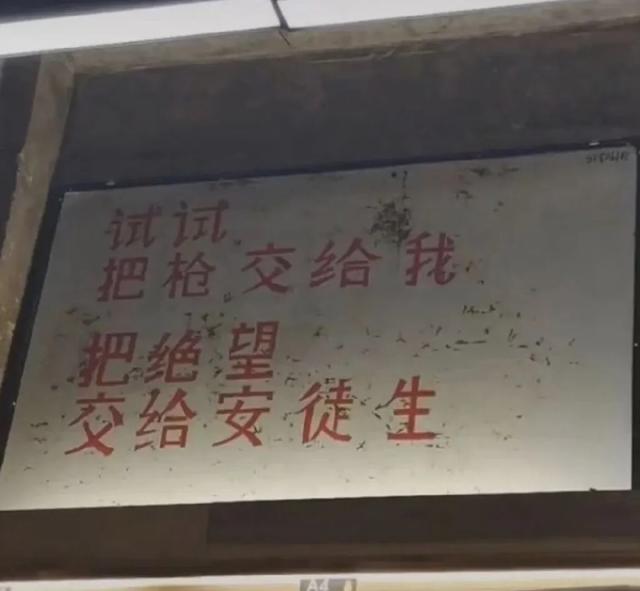 试试
把枪交给我
把绝望
交给安徒生
A4